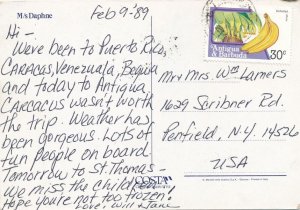 M/s Daphne
Feb 9-'89
Hi -
We've been to Puerto Rico,
CARACAS, Venezuala, Bequia
and today to Antigua
CARCACUS wasn't worth
the trip. Weather has
been gorgeous. Lots of
fun people on board.
Tomorrow to St. Thomas -
we miss the children.
Hope you're not too frozen!
Love, Will & Jane
Antigua
& Barbuda
30¢
Mr & Mrs. Wm Lamers
1629 Scribner Rd.
Penfield, N.Y. 14526
USA